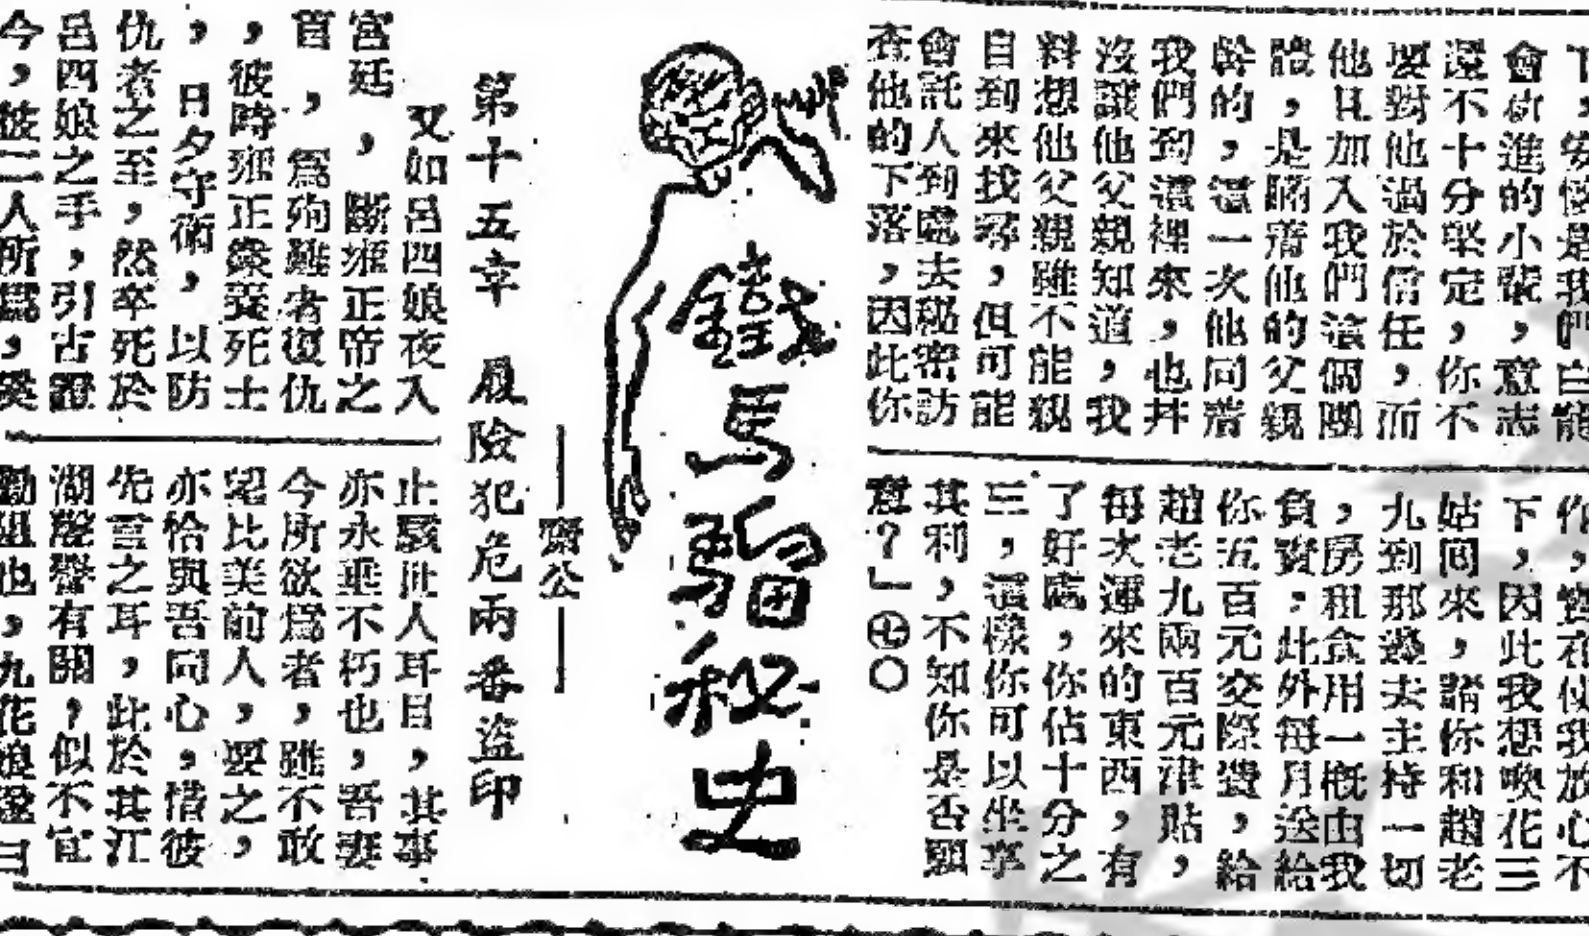 會
進的小張，意志
還不十分堅定，你不
要對他過於信任，而
他且加入我們這個團
體，是瞞着他的父親
幹的，這一次他同着
我們到這裡來，也并
沒讓他父親知道，我
料想他父親雖不能親
自到來找尋，但可能
會託人到處去秘密訪
查他的下落，因此你
下，因此我想喚花三
姑回來，請你和趙老
九到那邊去主持一切
，房租食用一概由我
負責，此外每月送給
你五百元交際費，給
趙老九兩百元津貼，
每次運來的東西，有
了好處，你佔十分之
三，這樣你可以坐享
其利，不知你是否願
意？」㊆〇
鐵馬騮秘史
齋公
第十五章　履險犯危兩番盜印
又如呂四娘夜入
宮廷，斷雍正帝之
首，爲殉難者復仇
，彼時雍正豢養死士
，日夕守衛，以防
仇者之至，然卒死於
呂四娘之手，引古證
今，彼二人所爲，
止駭世人耳目，其事
亦永垂不朽也，吾妻
今所欲爲者，雖不敢
比美前人，要之，
亦恰與吾同心，惜彼
先言之耳，此於其江
湖聲譽有關，似不宜
勸阻也，九花娘遂曰